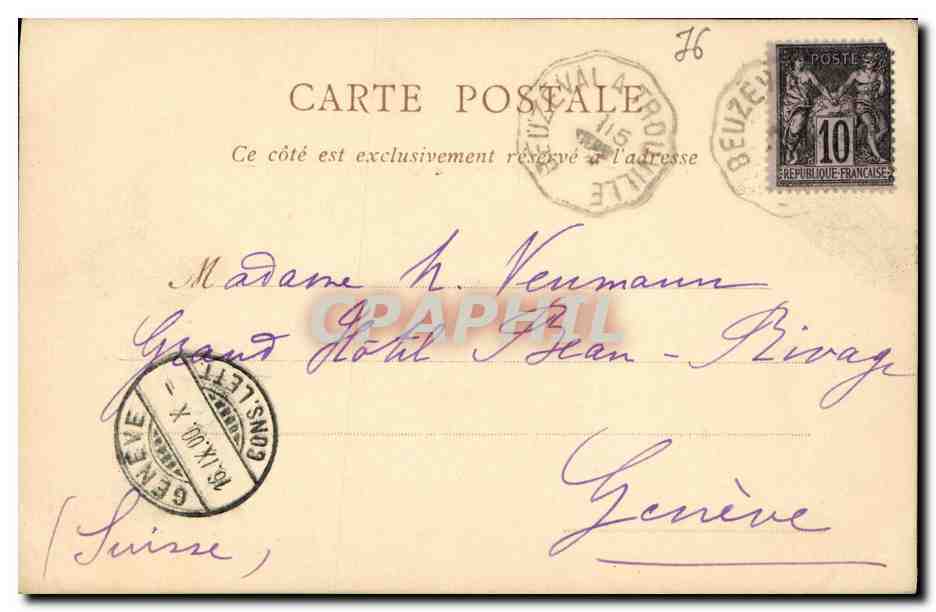 76
CARTE POSTALE
Ce côté est exclusivement réservé à l'adresse
BEUZEVAL A TROUVILLE
15
BEUZEV
POSTE
10
RÉPUBLIQUE·FRANÇAISE
Madame h. Neumann
CPAPHIL
Grand Hôtel Beau-Rivage
GENÈVE
16.IX.00. X
CONS. LETT.
Genève
(Suisse)